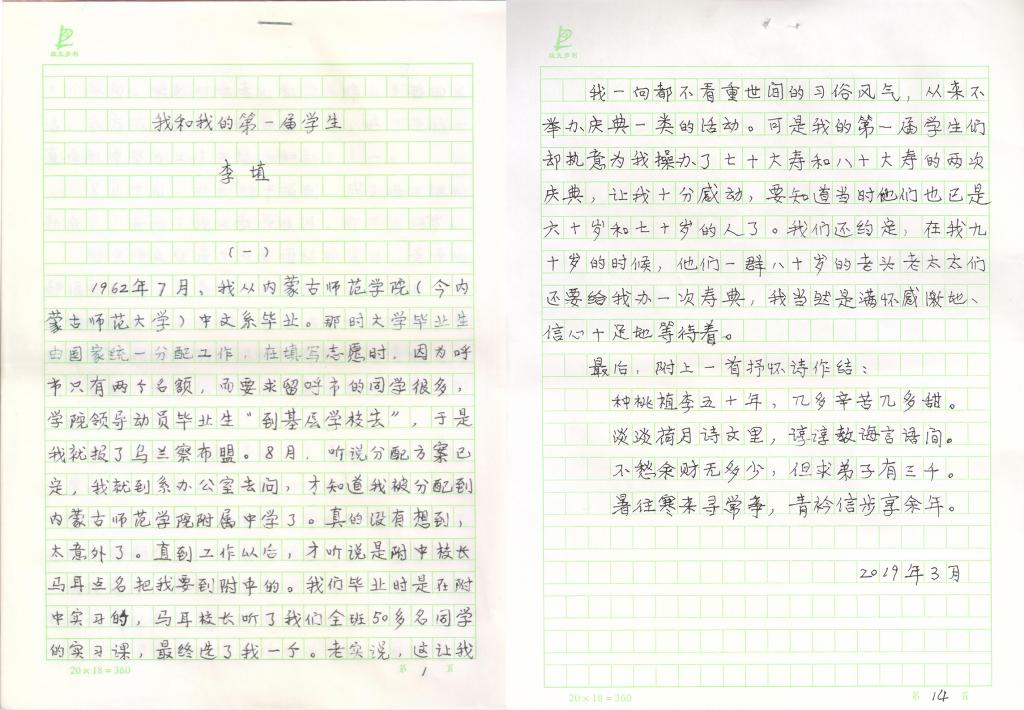 我和我的第一届学生
李 埴
(一)
1962年7月、我从内蒙古师范学院(今内
蒙古师范大学)中文系毕业。那时大学毕业生
由国家统一分配工作,在填写志愿时,因为呼
市只有两个名额,而要求留呼市的同学很多,
学院领导动员毕业生“到基层学校去”,于是
我就报了乌兰察布盟。8月,听说分配方案已
定,我就到系办公室去问,才知道我被分配到
内蒙古师范学院附属中学了。真的没有想到,
太意外了。直到工作以后,才听说是附中校长
马耳点名把我要到附中的。我们毕业时是在附
中实习的,马耳校长听了我们全班50多名同学
的实习课,最终选了我一个。老实说,这让我
20×18=360
第 1 页
我一向都不看重世间的习俗风气,从来不
举办庆典一类的活动。可是我的第一届学生们
却执意为我操办了七十大寿和八十大寿的两次
庆典,让我十分感动,要知道当时他们也已是
六十岁和七十岁的人了。我们还约定,在我九
十岁的时候,他们一群八十岁的老头老太太们
还要给我办一次寿典,我当然是满怀感激地、
信心十足地等待着。
最后,附上一首抒怀诗作结:
种桃植李五十年,几多辛苦几多甜。
淡淡荷月诗文里,谆谆教诲言语间。
不愁余财无多少,但求弟子有三千。
暑往寒来寻常事,青衿信步享余年。
2019年3月
20×18=360
第 14 页